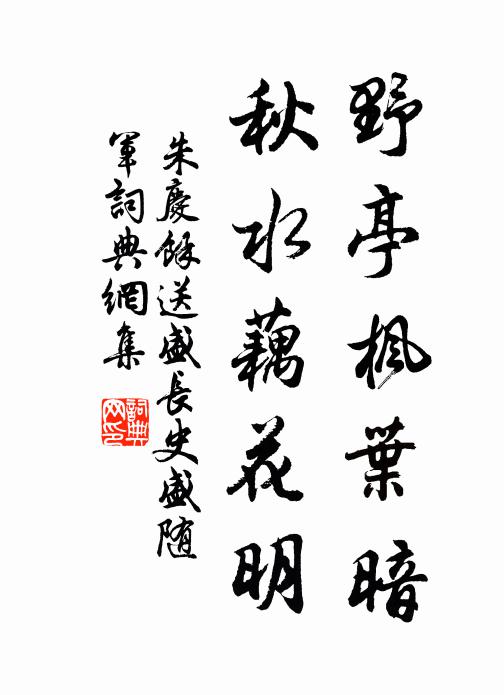 野亭楓葉暗
秋水藕花明
朱慶餘送盛長史盛随
軍詞典網集
詞典网印